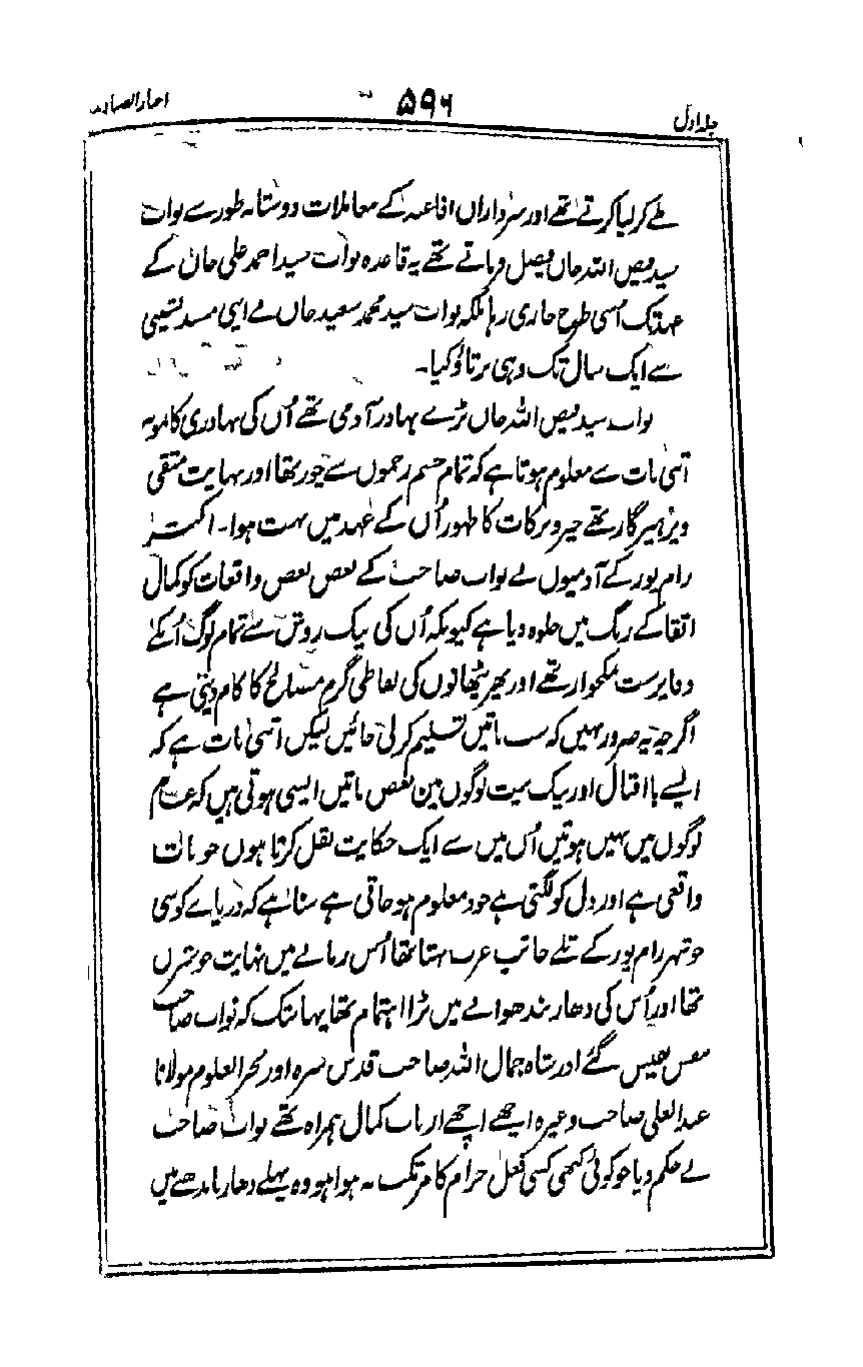 جلد اول
۵۹۶
اخبار الصنادید
طے کر لیا کرتے تھے اور سرداراں افاغنہ کے معاملات دوستانہ طور سے نواب
سید فیض اللہ خاں فیصل فرماتے تھے یہ قاعدہ نواب سید احمد علی خان کے
عہد تک اُسی طرح جاری رہا بلکہ نواب سید محمد سعید خاں نے اپنی مسند نشینی
سے ایک سال تک وہی برتاؤ کیا۔
نواب سید فیض اللہ خاں بڑے بہادر آدمی تھے اُن کی بہادری کا نمونہ
اتنی بات سے معلوم ہوتا ہے کہ تمام جسم زخموں سے چور تھا اور نہایت متقی
و پرہیزگار تھے خیر و برکات کا ظہور اُن کے عہد میں بہت ہوا۔ اکثر
رام پور کے آدمیوں نے نواب صاحب کے بعض بعض واقعات کو کمال
اتقا کے رنگ میں جلوہ دیا ہے کیونکہ اُن کی نیک روش سے تمام لوگ اُنکے
دعا پرست نمکخوار تھے اور پھر پٹھانوں کی لفاظی گرم مسالح کا کام دیتی ہے
اگرچہ یہ ضرور نہیں کہ سب باتیں تسلیم کر لی جائیں لیکن اتنی بات ہے کہ
ایسے با اقبال اور نیک نیت لوگوں مین بعض باتیں ایسی ہوتی ہیں کہ عام
لوگوں میں نہیں ہوتیں اُس میں سے ایک حکایت نقل کرتا ہوں جو بات
واقعی ہے اور دل کو لگتی ہے خود معلوم ہو جاتی ہے سنا ہے کہ دریاے کوسی
جو شہر رام پور کے تلے جانب غرب بہتا تھا اُس زمانے میں نہایت جوش زن
تھا اور اُس کی دھار بندھوانے میں بڑا اہتمام تھا یہانتک کہ نواب صاحب
بنفس نفیس گئے اور شاہ جمال اللہ صاحب قدس سرہ اور بحر العلوم مولانا
عبد العلی صاحب وغیرہ اچھے اچھے ارباب کمال ہمراہ تھے نواب صاحب
نے حکم دیا جو کوئی کبھی کسی فعل حرام کا مرتکب نہ ہوا ہو وہ پہلے دھار باندھے میں